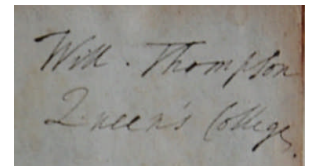 Will. Thompson
Queen's College.